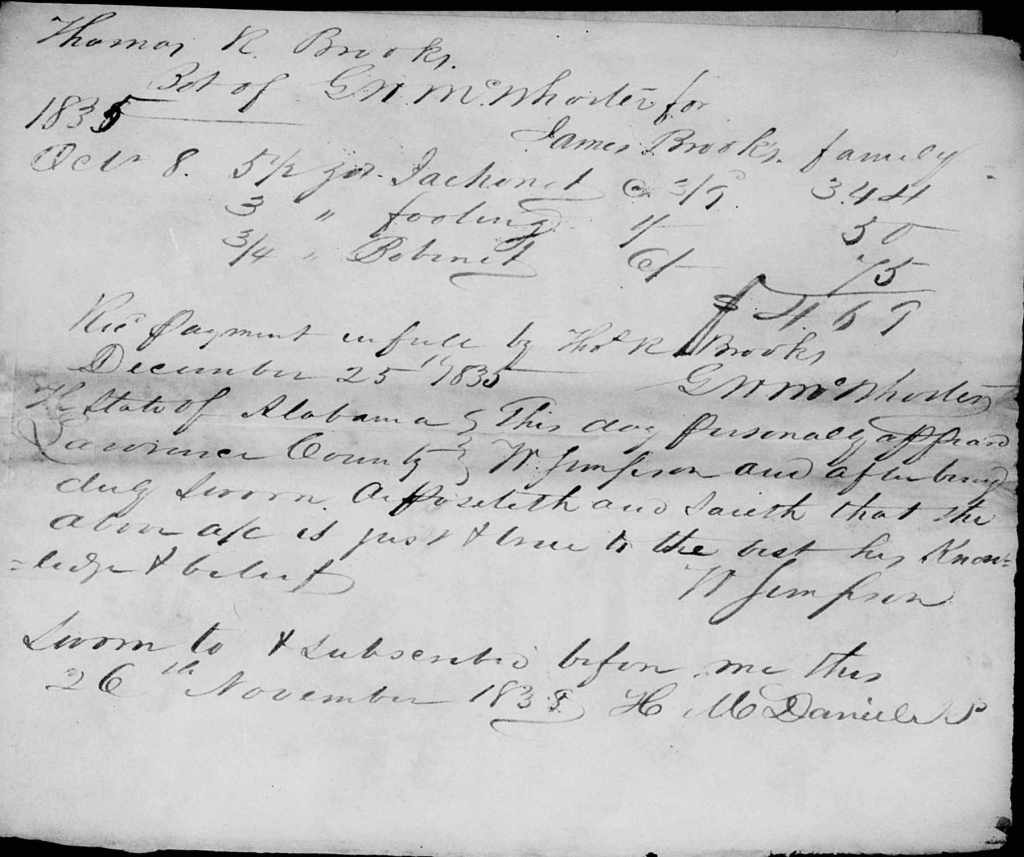 Thomas R. Brooks.
Bot of G W. McWhorter for
1835 James Brooks. family
Octr 8. 5 1/2 yds. Jackonet @ 3/9. 3.44
3 " footing 1/ 50
3/4 " Bobinet 6/ 75
$ 4.69
Recd payment in full by Thos R Brooks
December 25th 1835 G W McWhorter
The State of Alabama } This day personaly appeard
Lawrence County } W. Simpson and after being
duly sworn deposeteth and saieth that the
above a/c is just & true to the best his know=
=ledge & belief W Simpson
Sworn to & subscribed before me this
26th November 1838 H McDaniel JP